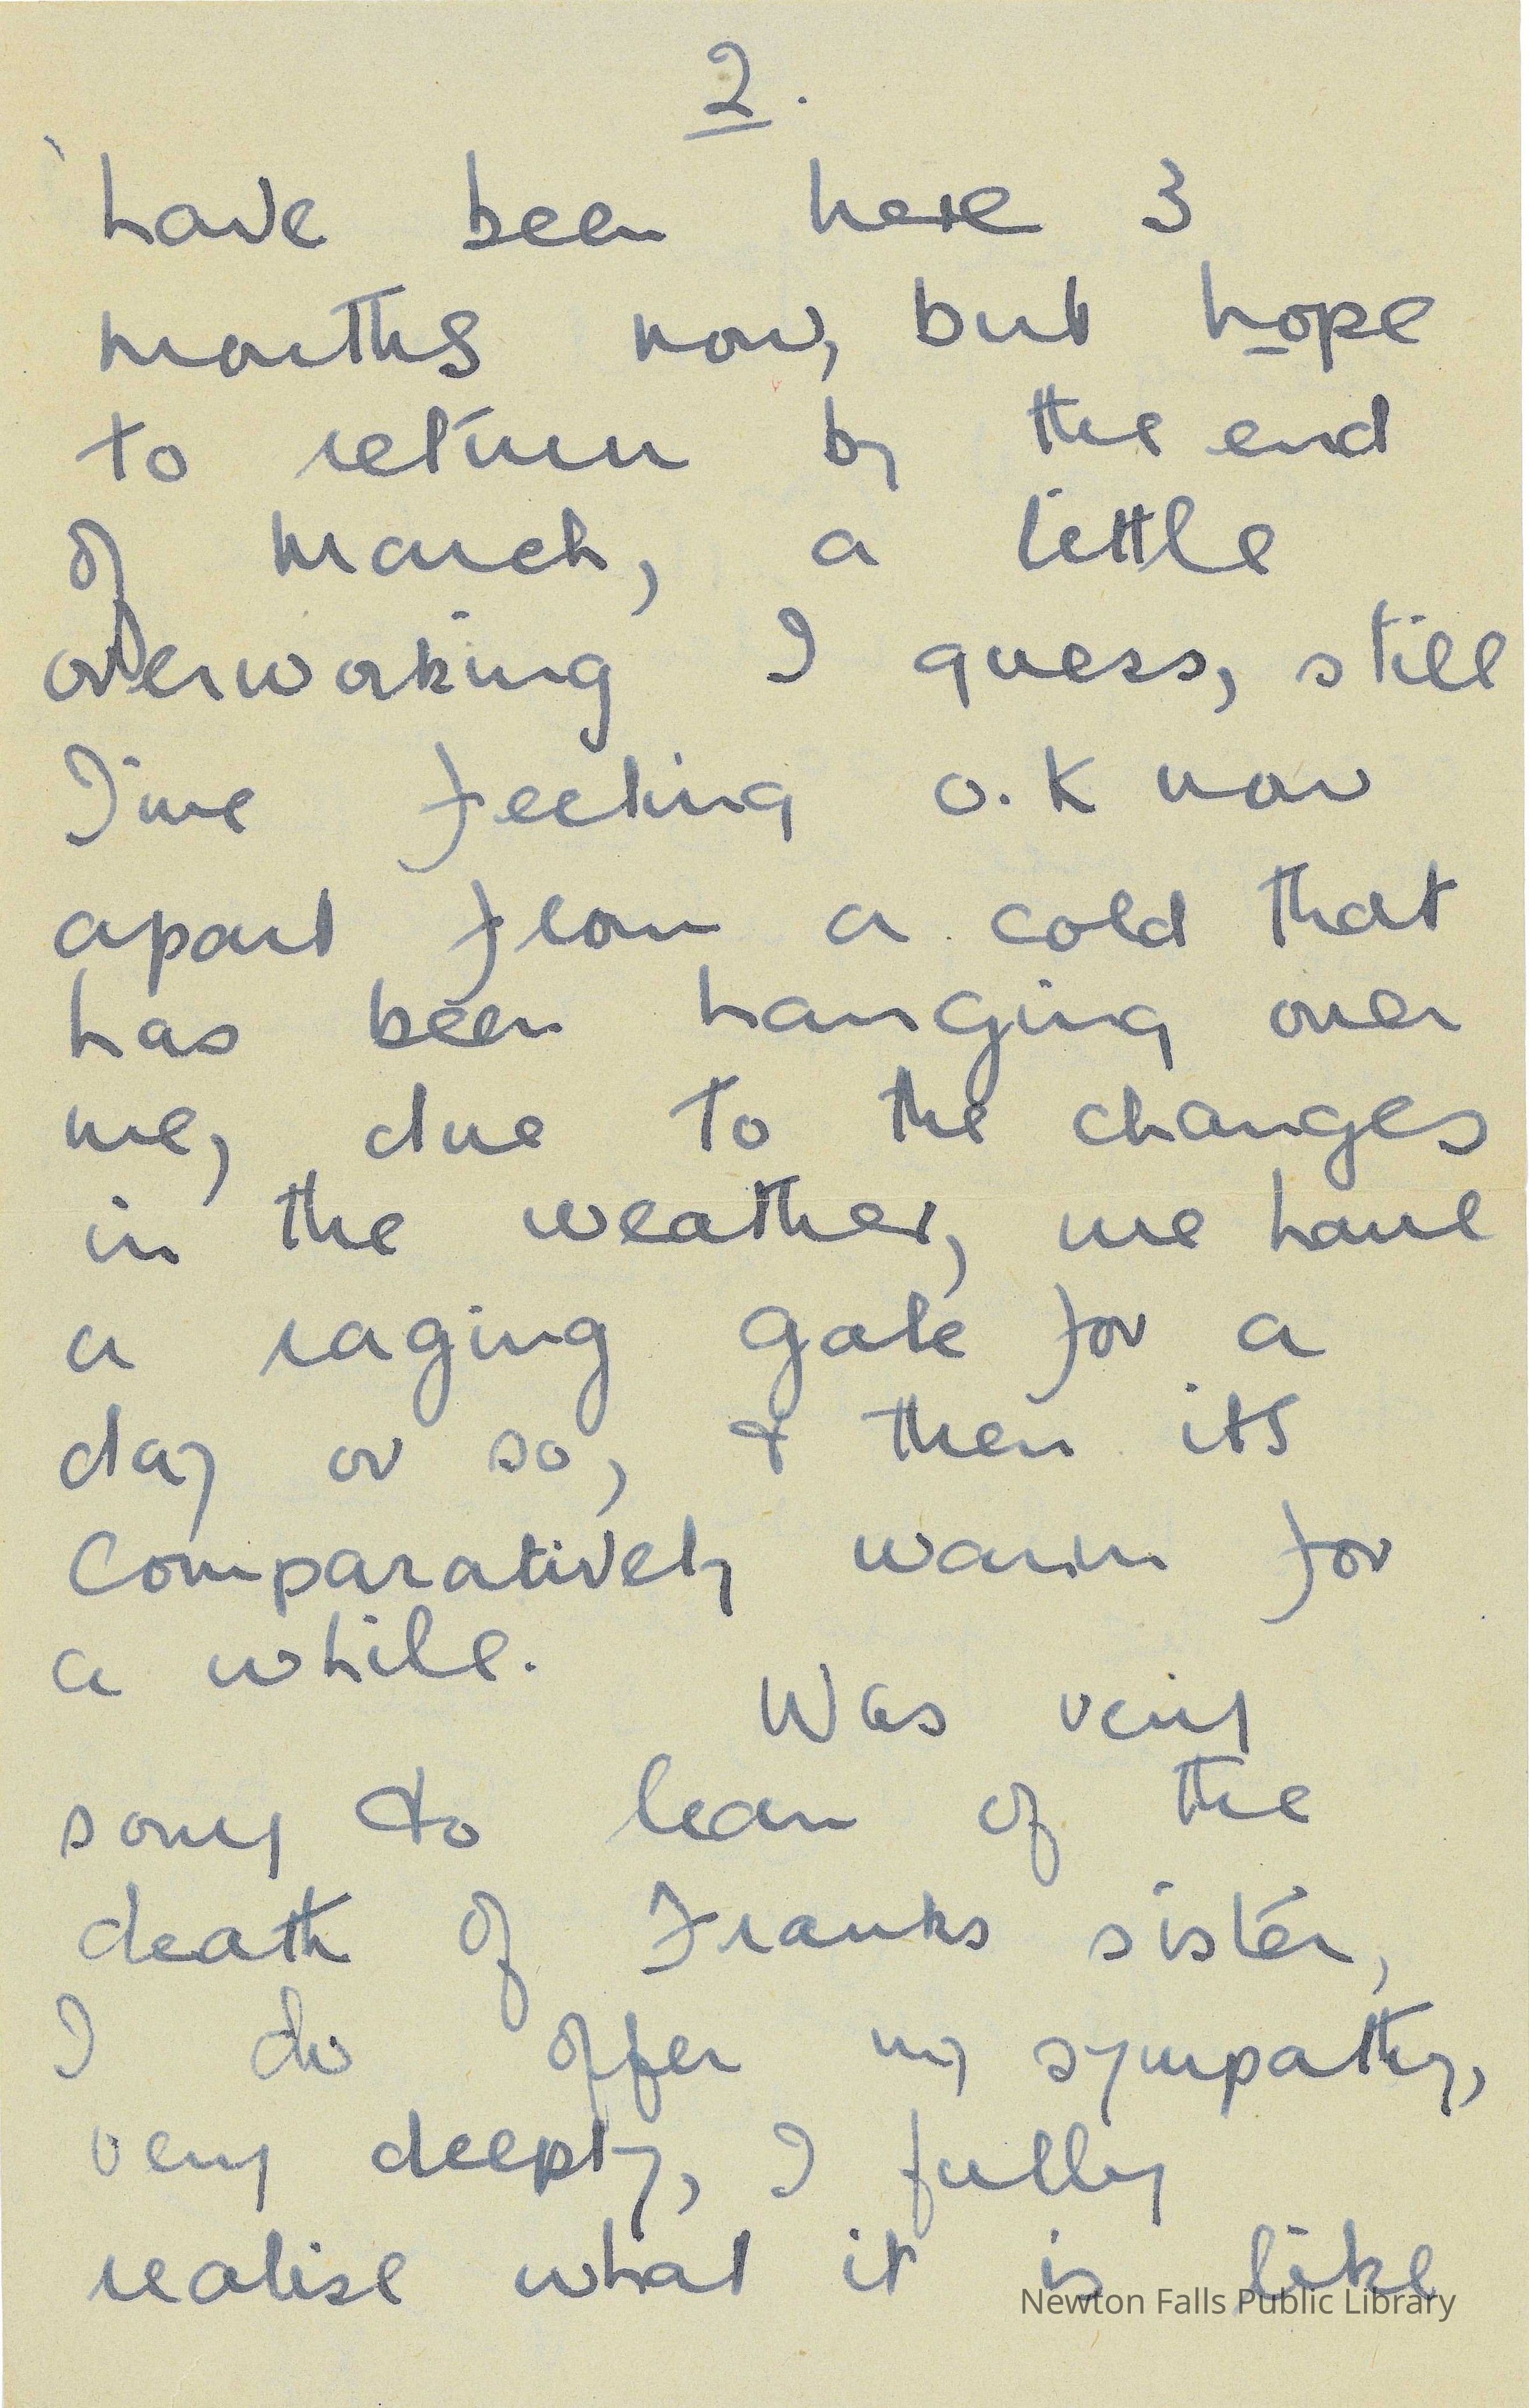 2.
have been here 3
months now, but hope
to return by the end
of march, a little
overworking I guess, still
I'me feeling o.K now
apart from a cold that
has been hanging over
me, due to the changes
in the weather, we have
a raging gale for a
day or so, & then its
Comparatively warm for
a while.
Was very
sorry to learn of the
death of Franks sister,
I do offer my sympathy,
very deeply, I fully
realise what it is like
Newton Falls Public Library